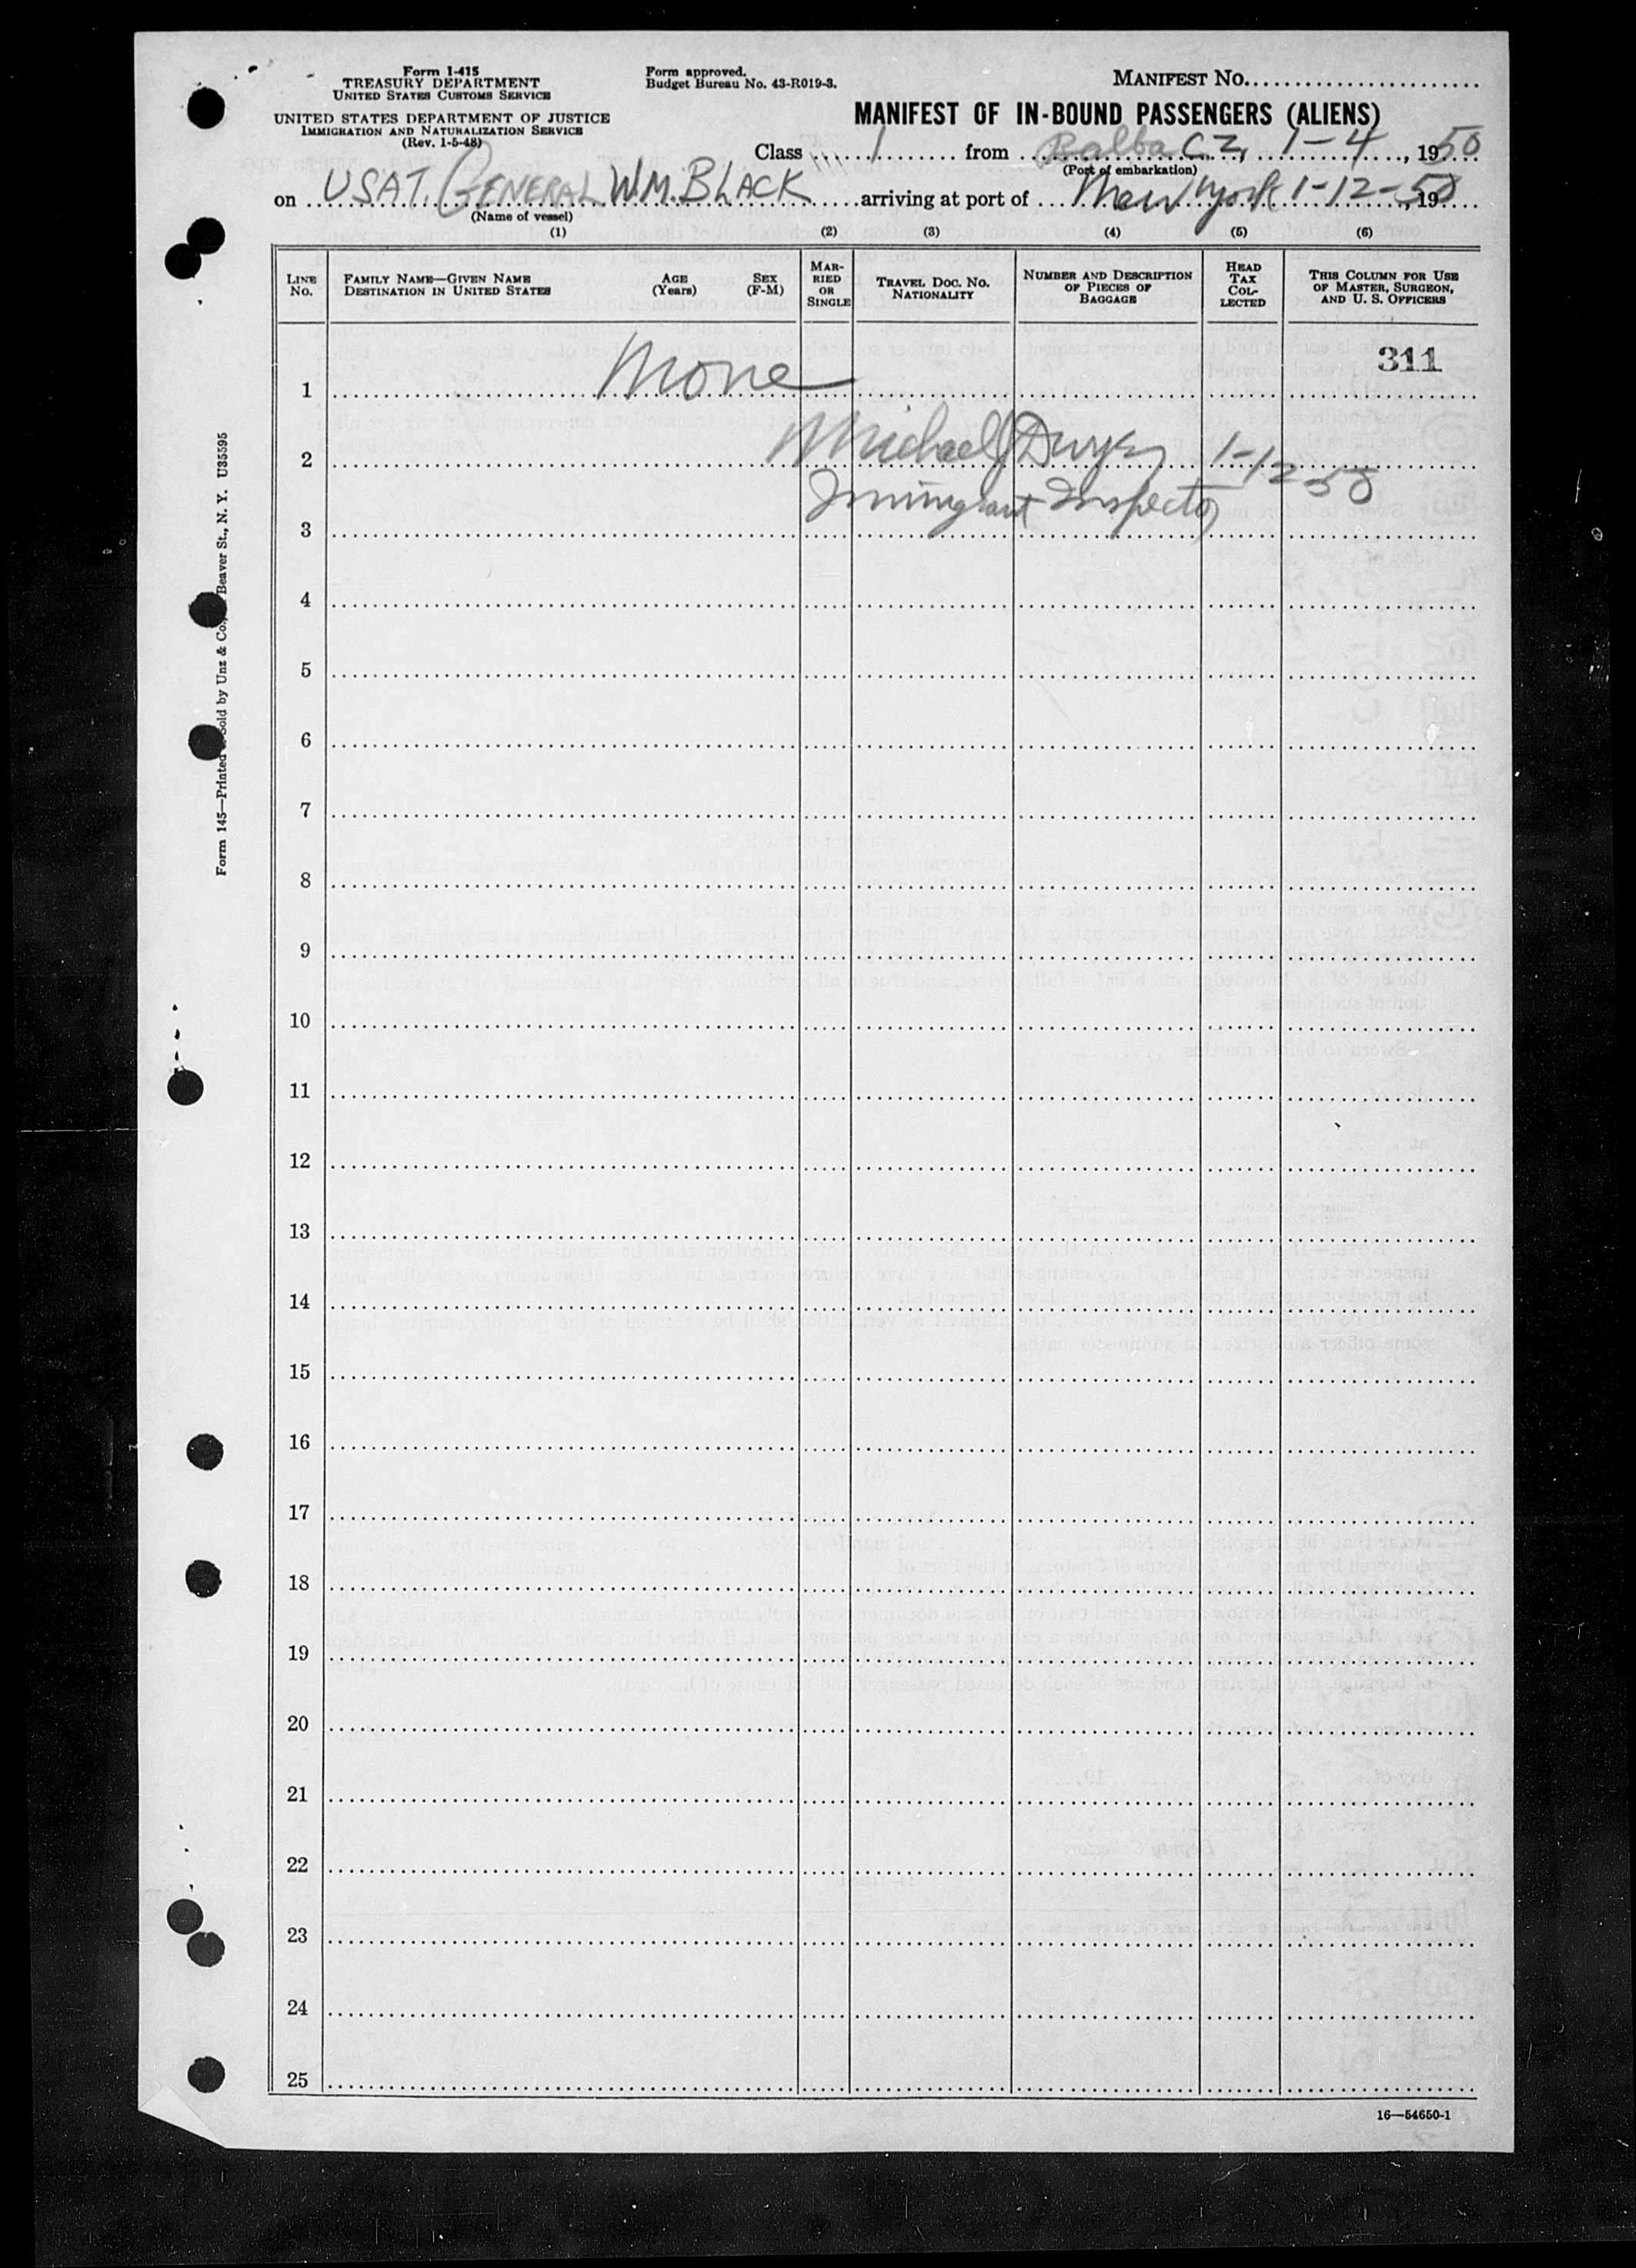 Form I-415
TREASURY DEPARTMENT
UNITED STATES CUSTOMS SERVICE
UNITED STATES DEPARTMENT OF JUSTICE
IMMIGRATION AND NATURALIZATION SERVICE
(Rev. 1-5-48)
Form approved.
Budget Bureau No. 43-R019-3.
MANIFEST NO.
MANIFEST OF IN-BOUND PASSENGERS (ALIENS)
Class 1 from Balboa CZ, 1-4, 1950
(Port of embarkation)
on USAT. GENERAL WM. BLACK arriving at port of New York 1-12-50, 19
(Name of vessel)
(1) (2) (3) (4) (5) (6)
LINE NO.
FAMILY NAME—GIVEN NAME AGE (Years) SEX (F-M)
DESTINATION IN UNITED STATES
MARRIED OR SINGLE
TRAVEL DOC. NO. NATIONALITY
NUMBER AND DESCRIPTION OF PIECES OF BAGGAGE
HEAD TAX COLLECTED
THIS COLUMN FOR USE OF MASTER, SURGEON, AND U. S. OFFICERS
311
1 None
2 Michael J Dwyer 1-12-50
Immigrant Inspector
3
4
5
6
7
8
9
10
11
12
13
14
15
16
17
18
19
20
21
22
23
24
25
16—54650-1
Form 145—Printed Sold by Unz & Co., Beaver St., N. Y. U35595